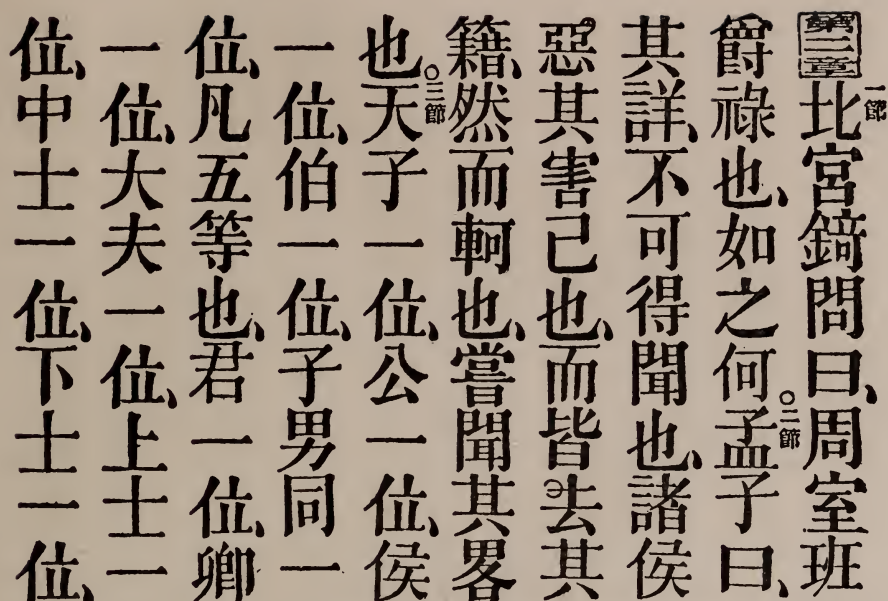 第二章 一節 北宮錡問曰、周室班
爵祿也、如之何、○二節 孟子曰、
其詳、不可得聞也、諸侯
惡其害己也、而皆去其
籍、然而軻也、嘗聞其畧
也、○三節 天子一位、公一位、侯
一位、伯一位、子男同一
位、凡五等也、君一位、卿
一位、大夫一位、上士一
位、中士一位、下士一位、